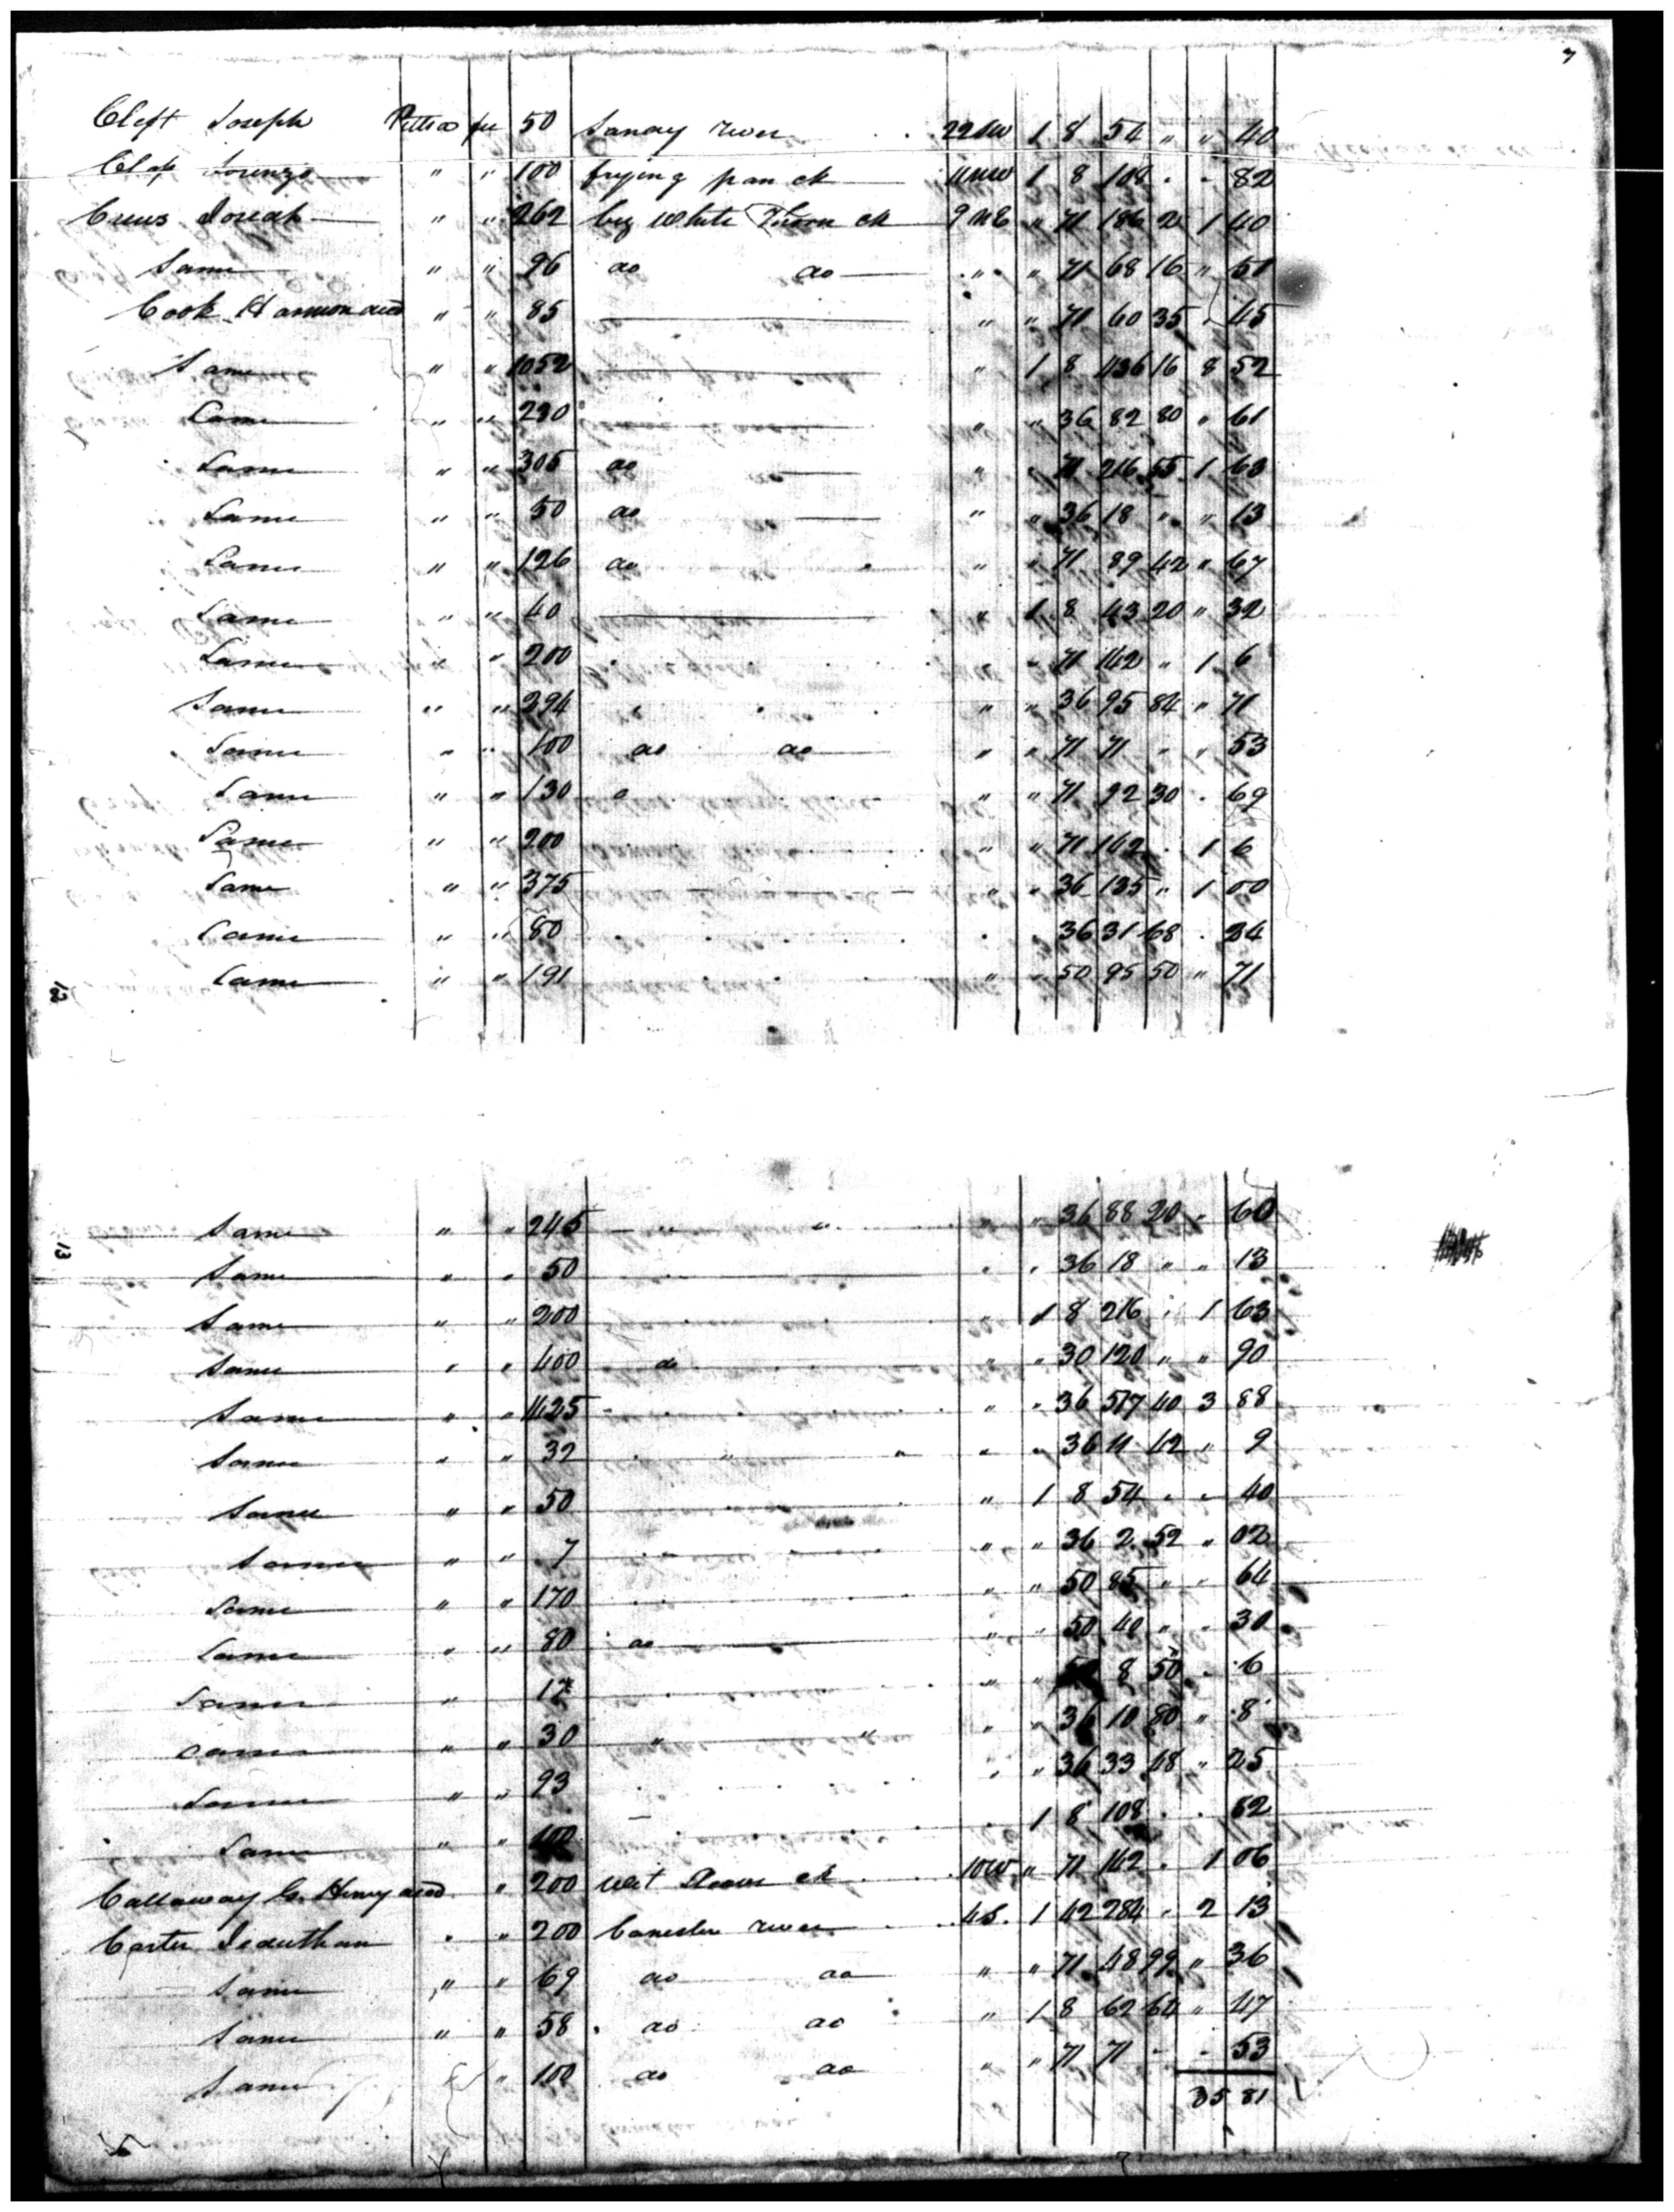 7
Cleft Joseph Pittsa fee 50 Sandy river 22 SW 1 8 54 " " 40
Clap Lorenzo " " 100 frying pan ck 11 NW 1 8 108 " " 82
Crews Josiah " " 262 big White Thorn ck 9 NE " 71 186 2 1 40
Same " " 96 do do " " 71 68 16 " 51
Cook Harmon decd " " 85 " " 71 60 35 " 45
Same " " 1052 " 1 8 1136 16 8 52
Same " " 230 " " 36 82 80 " 61
Same " " 305 do " " 71 216 55 1 63
Same " " 50 do " " 36 18 " " 13
Same " " 126 do " " 71 89 42 " 67
Same " " 40 " 1 8 43 20 " 32
Same " " 200 " 71 142 " 1 6
Same " " 294 " " 36 95 84 " 71
Same " " 100 do do " " 71 71 " " 53
Same " " 130 " " 71 92 30 " 69
Same " " 200 " " 71 142 " 1 6
Same " " 375 " " 36 135 " 1 00
Same " " 80 36 31 68 " 24
Same " " 191 " " 50 95 50 " 71
12
13
Same " " 245 " " " " 36 88 20 " 60
Same " " 50 " " 36 18 " " 13
Same " " 200 " 1 8 216 " 1 63
Same " " 400 do " " 30 120 " " 90
Same " " 1425 " " 36 517 40 3 88
Same " " 32 " " " " 36 11 42 " 9
Same " " 50 " 1 8 54 " " 40
Same " " 7 " " 36 2 52 " 02
Same " " 170 " " 50 85 " " 64
Same " " 80 do " " 50 40 " " 30
Same " 17 " " 8 50 " 6
Same " " 30 " " " " 36 10 80 " 8
Same " " 93 " " 36 33 48 " 25
Same " " 100 1 8 108 " " 82
Callaway G. Henry decd " 200 10 W " 71 142 " 1 06
Carter Jeduthan " " 200 Banester river 4 S. 1 42 284 " 2 13
Same " " 69 do do " " 71 48 99 " 36
Same " " 58 do do " 1 8 62 64 " 47
Same " " 100 do do " " 71 71 " " 53
35 81